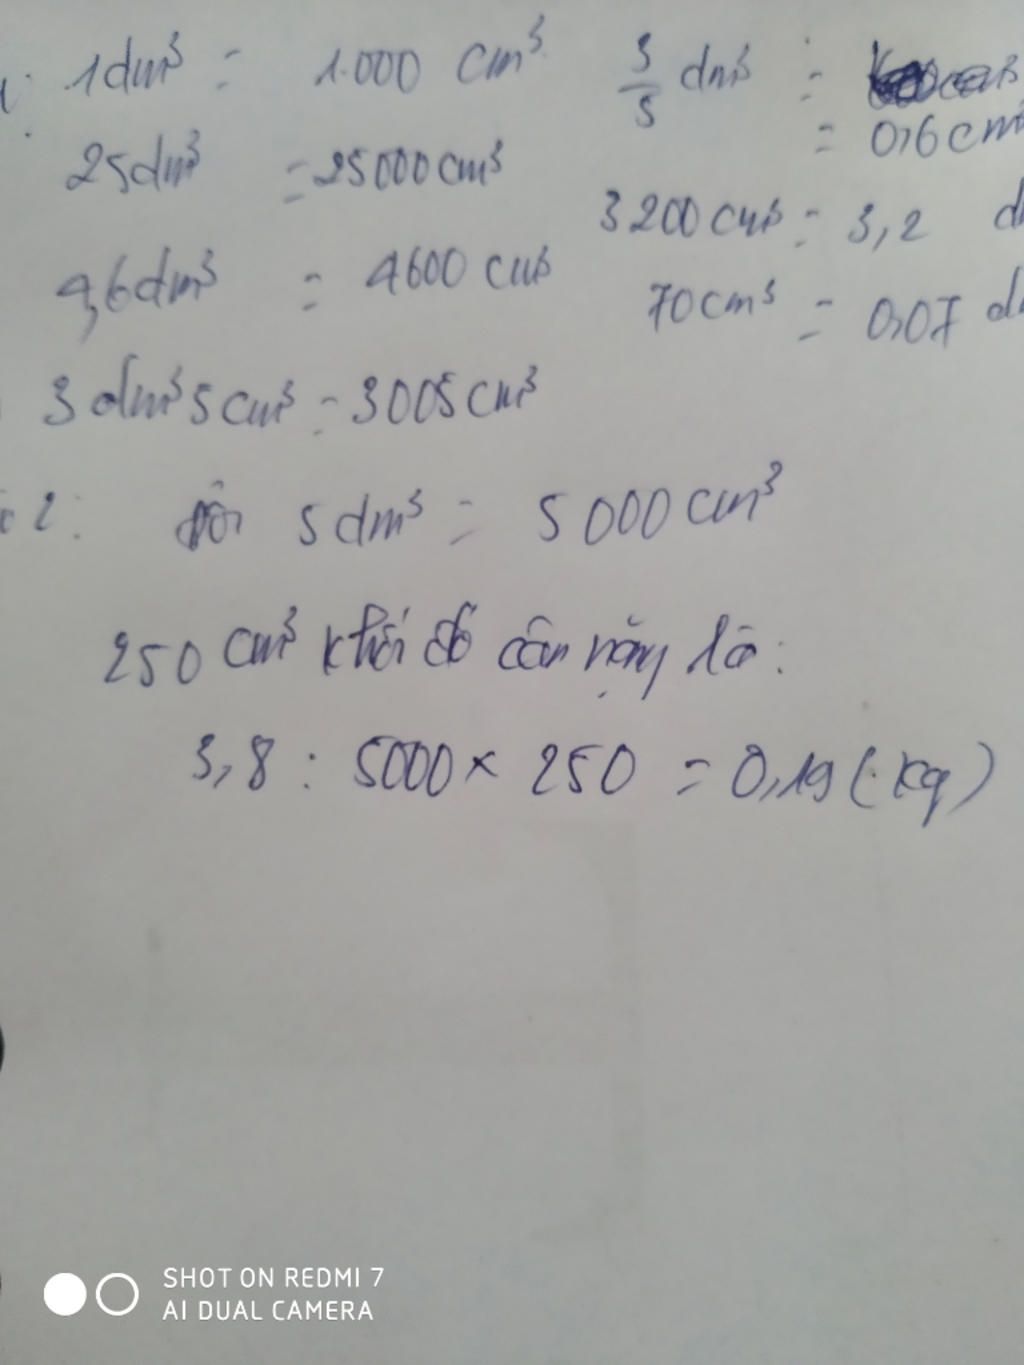 1dm³ = 1.000 cm³
25dm³ = 25000cm³
4,6dm³ = 4600 cm³
3 dm³ 5 cm³ = 3005 cm³
3/5 dm³ =
= 0,6 cm³
3200 cm³ = 3,2
70 cm³ = 0,07
2: Đổi 5 dm³ = 5000 cm³
250 cm³ khối đó cân nặng là:
3,8 : 5000 × 250 = 0,19 (kg)
SHOT ON REDMI 7
AI DUAL CAMERA